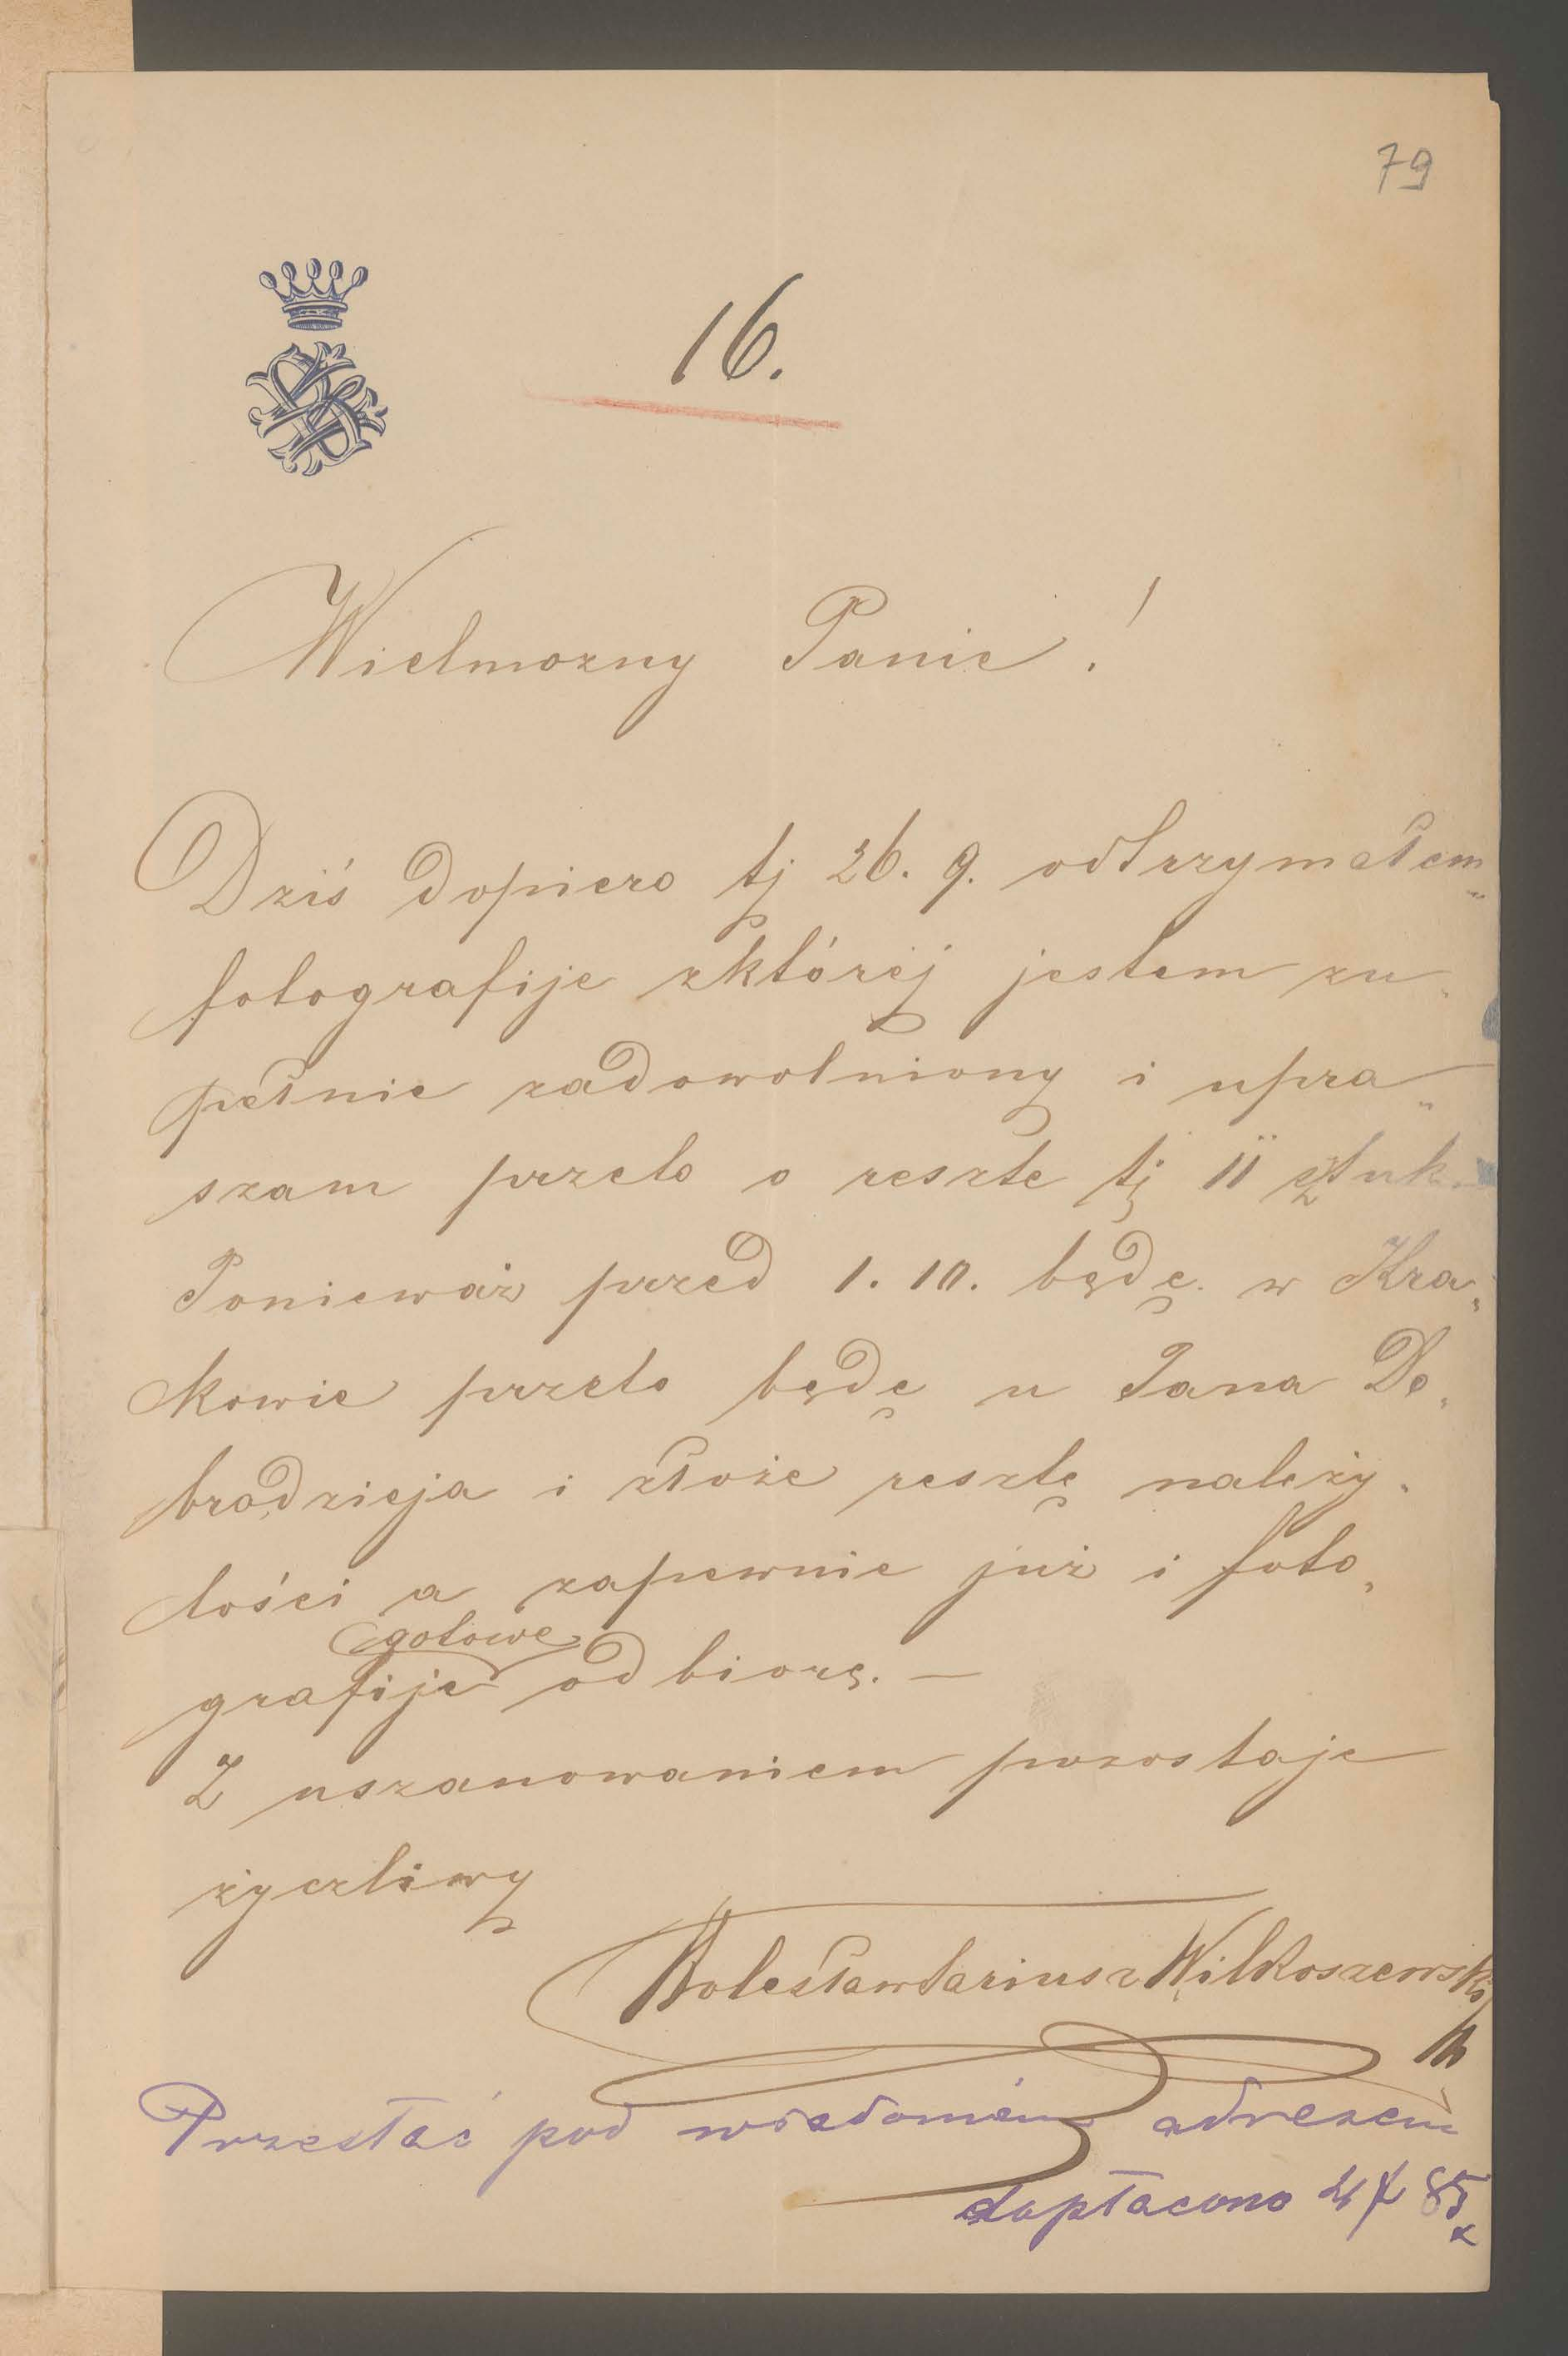 79
16.
Wielmozny Panie!
Dziś dopiero tj 26. 9. odtrzymałem
fotografije zktórėj jestem zu„
pełnie zadowolniony i upra„
szam przeto o reszte tj 11 sztuk.
Poniewaź przed 1. 10. będę w Kra„
kowie przeto będę u Pana Do„
brodzieja i złoźe resztę należy„
tości a zapewnie juź i foto„
gotowe
grafije odbiorę. —
Z uszanowaniem pozostaje
życzliwy
Bolesław Wilkoszewski
Przesłać pod adresem
dopłacono 4 f 85